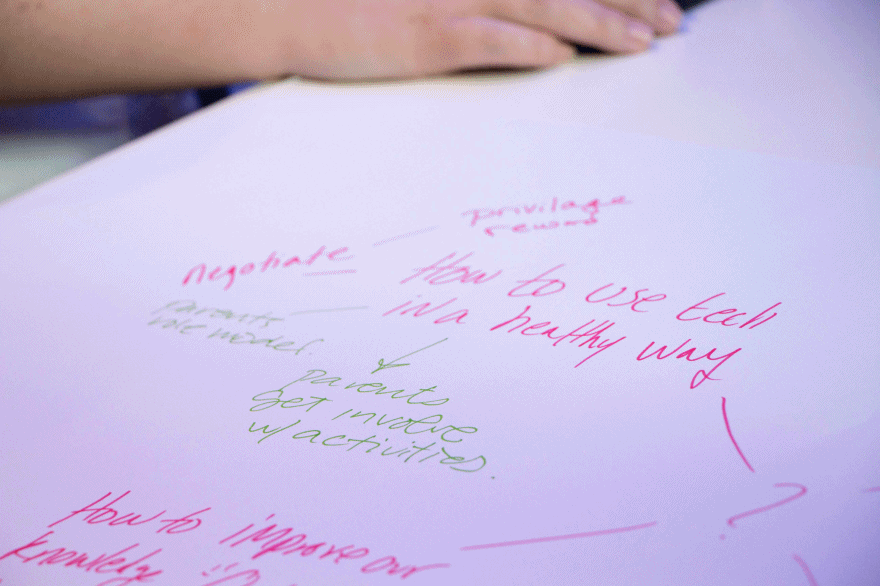 privilage
reward
negotiate
How to use tech
in a healthy way
parents
role model.
parents
get involve
w/ activities.
?
How to improve our
knowledge